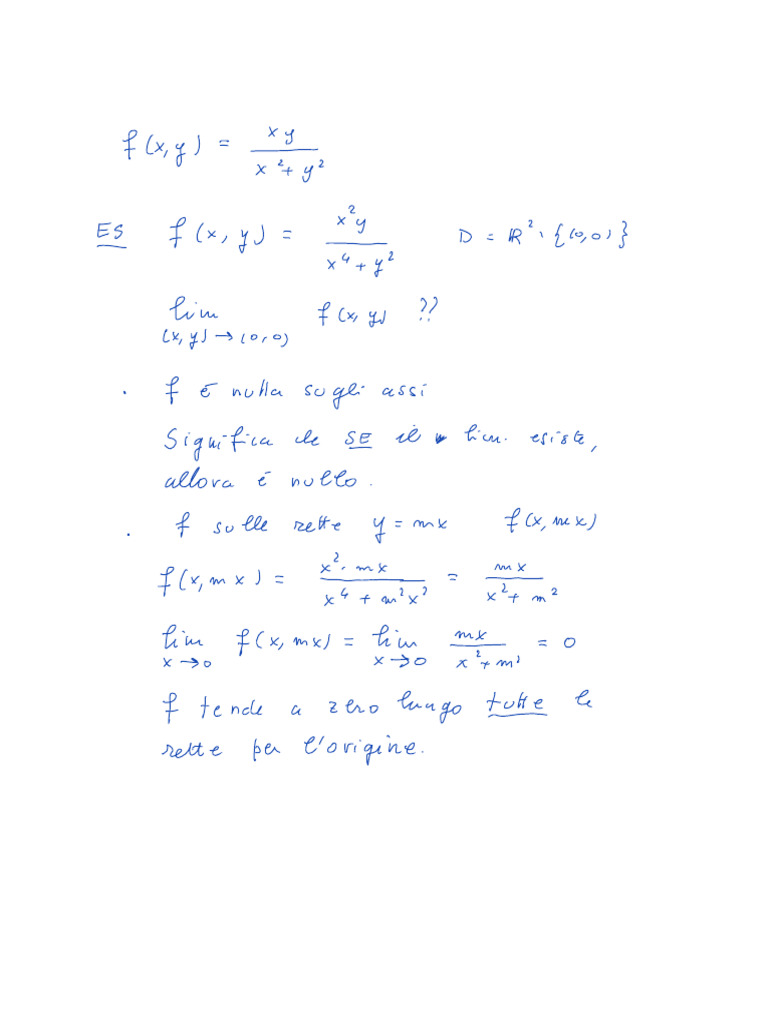 f(x,y) = xy / x²+y²
ES f(x,y) = x²y / x⁴+y² D = ℝ² \ {(0,0)}
lim (x,y)→(0,0) f(x,y) ??
• f è nulla sugli assi
Significa che SE il lim. esiste,
allora è nullo.
• f sulle rette y = mx f(x,mx)
f(x,mx) = x²·mx / x⁴+m²x² = mx / x²+m²
lim x→0 f(x,mx) = lim x→0 mx / x²+m² = 0
f tende a zero lungo tutte le
rette per l'origine.